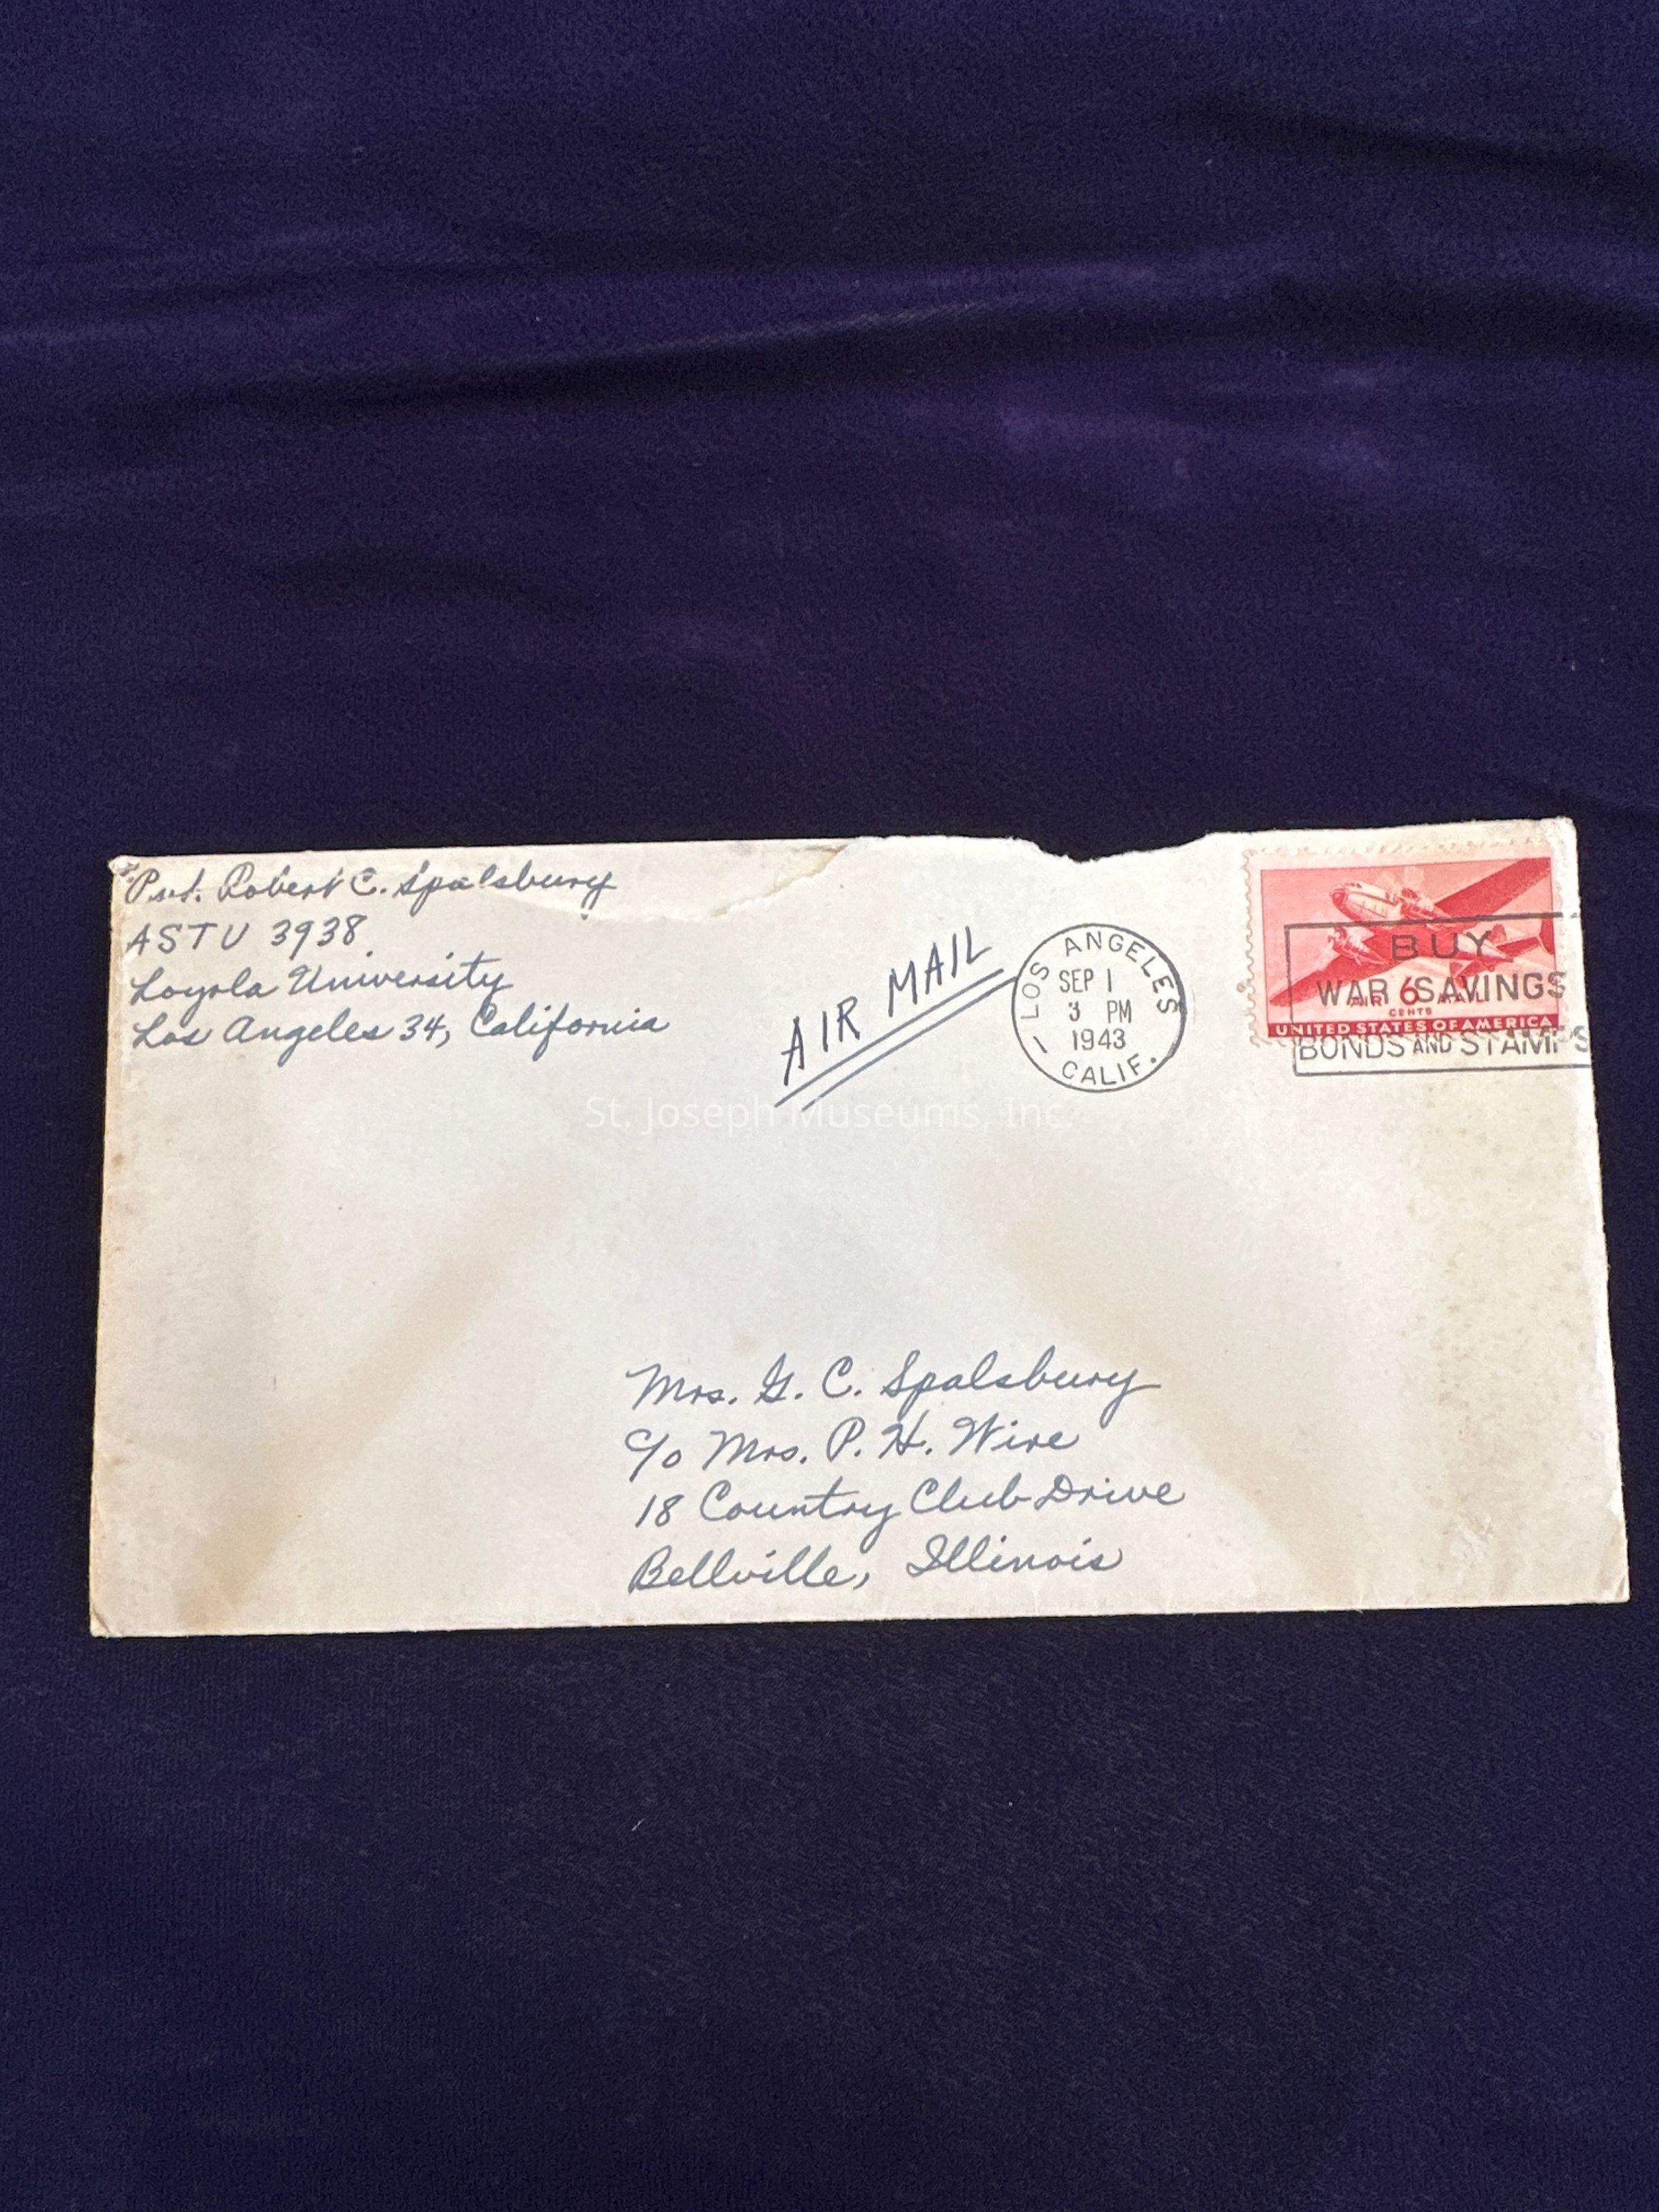 Pvt. Robert C. Spalsbury
ASTU 3938
Loyola University
Los Angeles 34, California
AIR MAIL
LOS ANGELES
SEP 1
3 PM
1943
CALIF.
1
BUY
WAR SAVINGS
BONDS AND STAMPS
AIR 6 MAIL
CENTS
UNITED STATES OF AMERICA
St. Joseph Museums, Inc.
Mrs. G. C. Spalsbury
c/o Mrs. P. H. Wire
18 Country Club Drive
Bellville, Illinois